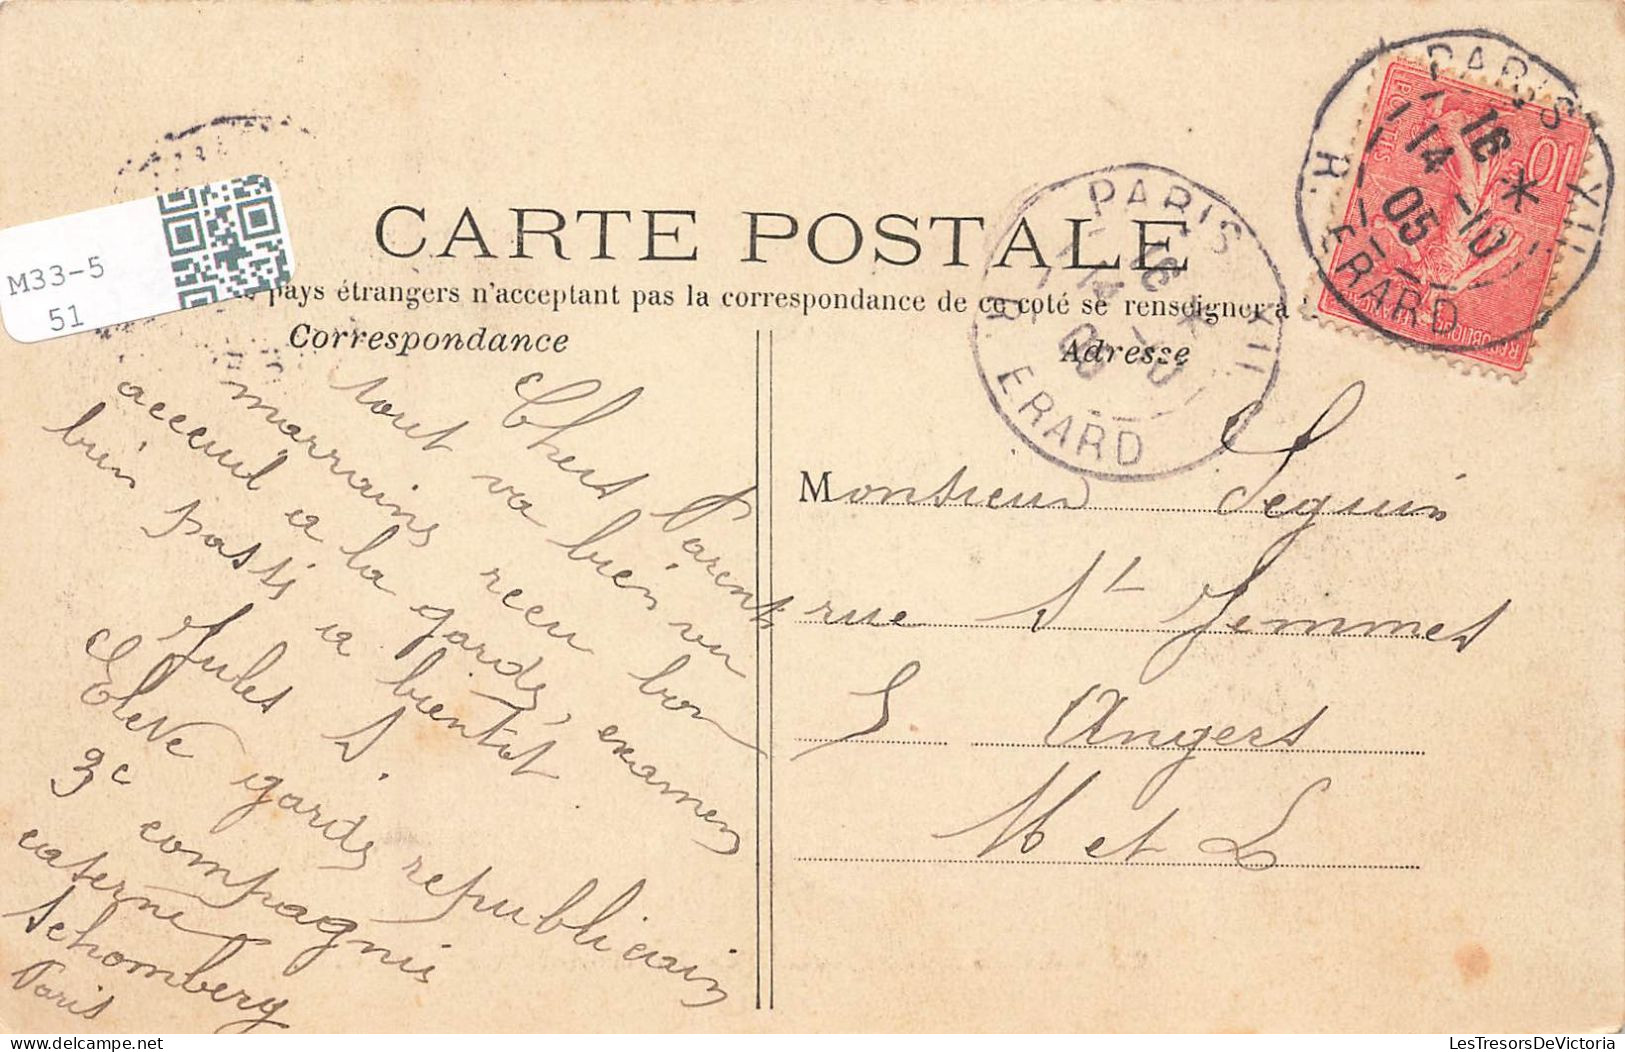 M33-5
51
CARTE POSTALE
pays étrangers n'acceptant pas la correspondance de ce coté se renseigner à
Correspondance
Adresse
PARIS XII
16 *
14 -10
05
R. ERARD
PARIS XII
16 *
14 -10
05
R. ERARD
10c
POSTES
REPUBLIQUE FRANCAISE
Chers Parents
tout va bien vu
marrains recu bon
acceuil a la garde, examen
bien passé a bientot
Jules S.
Eleve garde republicain
3e compagnie
caterne
Schomberg
Paris
Monsieur Seguin
rue St Jemmes
5 Angers
M et L
LesTresorsDeVictoria.com